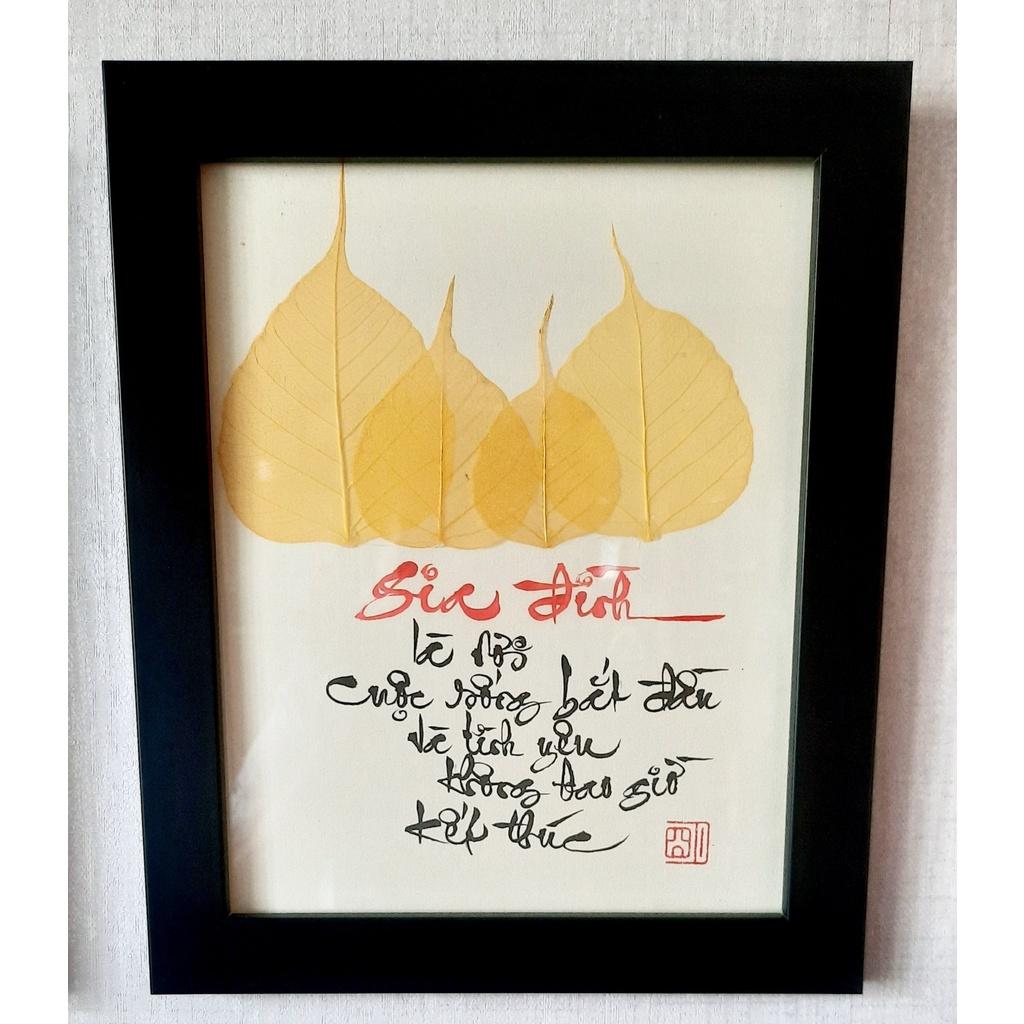 Gia đình
là nơi
cuộc sống bắt đầu
và tình yêu
không bao giờ
kết thúc